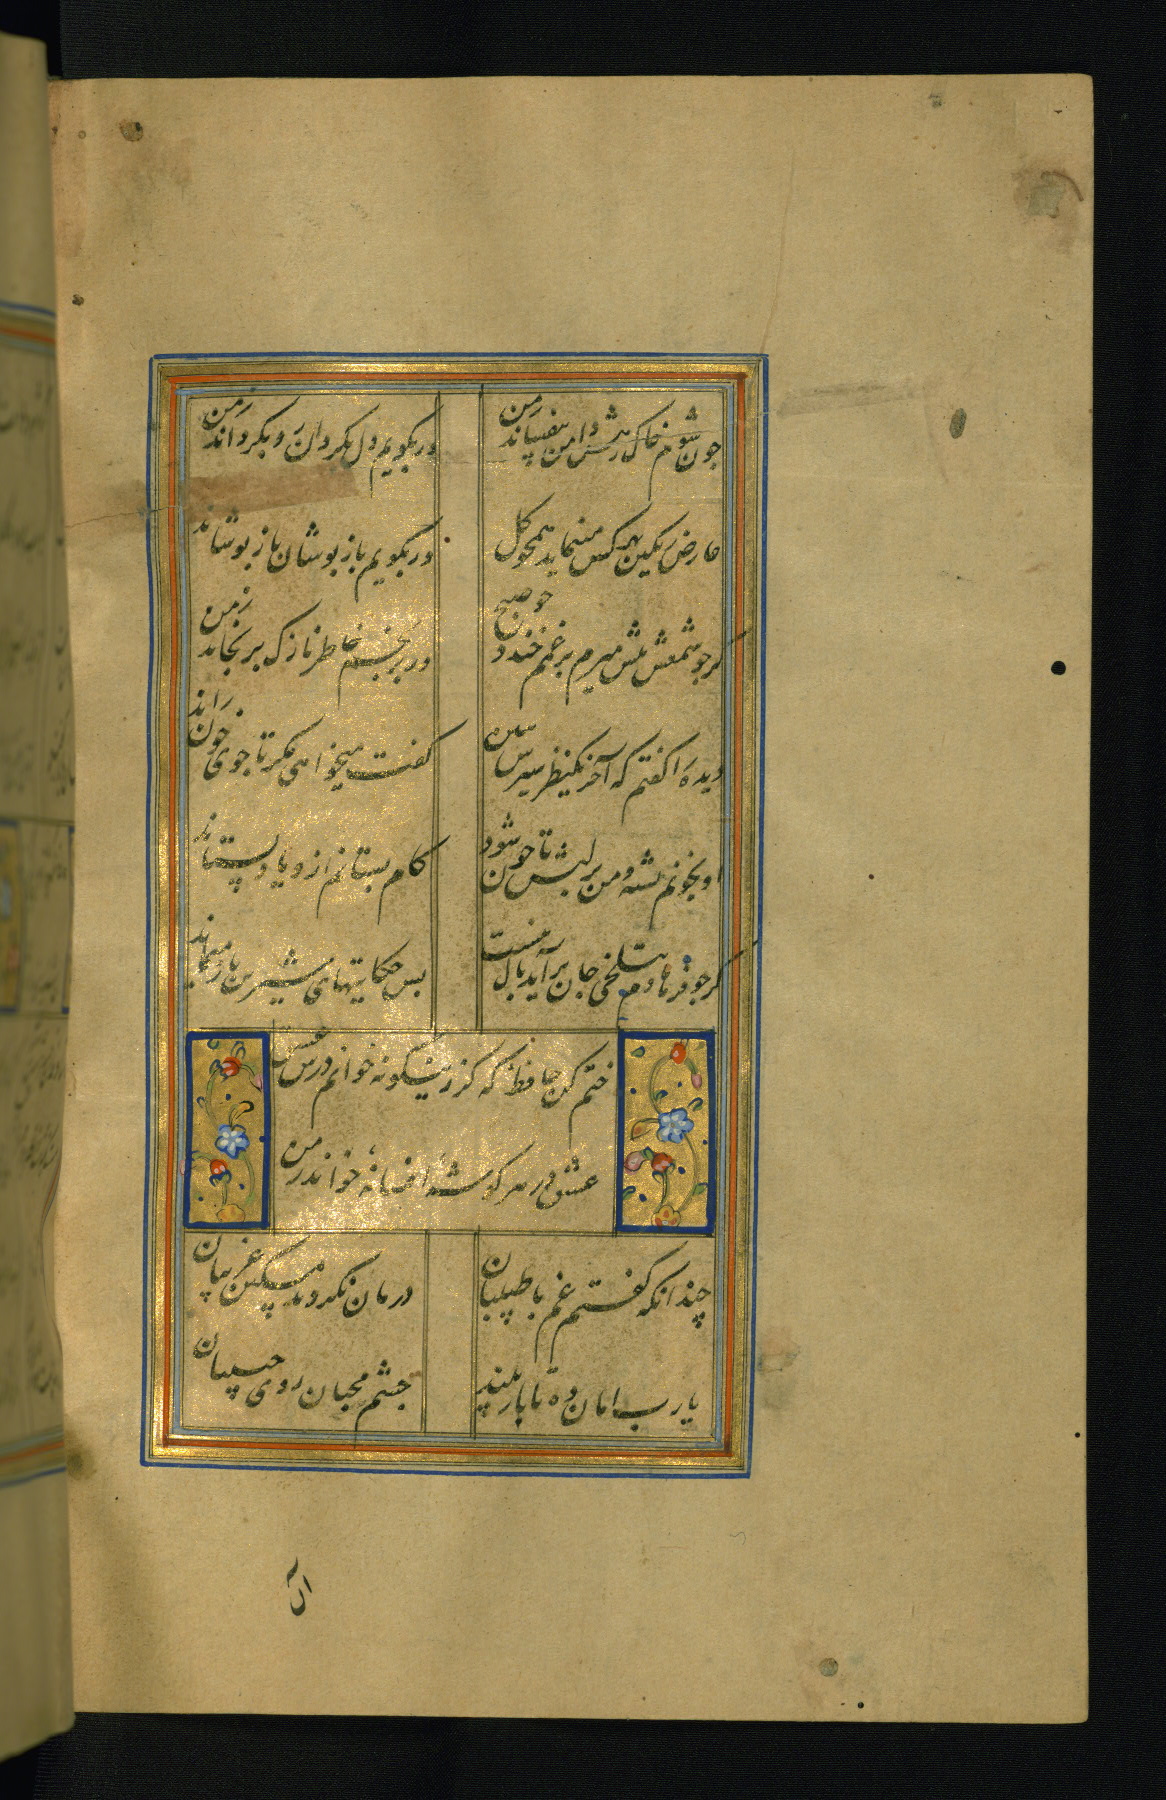 چون شوم خاک رهش دامن بیفشاند ز من
ور بگویم دل بگردان رو بگرداند ز من
عارض رنگین بهر کس مینماید همچو گل
ور بگویم باز پوشان باز پوشاند ز من
گر چو شمعش پیش میرم بر غمم خندد چو صبح
ور برنجم خاطر نازک برنجاند ز من
دیده را گفتم که آخر یکنظر سیرش ببین
گفت میخواهی مگر تا جوی خون راند ز من
او بخونم تشنه و من بر لبش تا چون شود
کام بستانم ازو یا داد بستاند ز من
گر چو فرهادم بتلخی جان برآید باک نیست
بس حکایتهای شیرین باز میماند ز من
ختم کن حافظ که گر زینگونه خوانم درس عشق
عشق در هر گوشه افسانه خواند ز من
چندانکه گفتم غم با طبیبان
درمان نکردند مسکین غریبان
یا رب امان ده تا باز بیند
چشم محبان روی حبیبان
آن